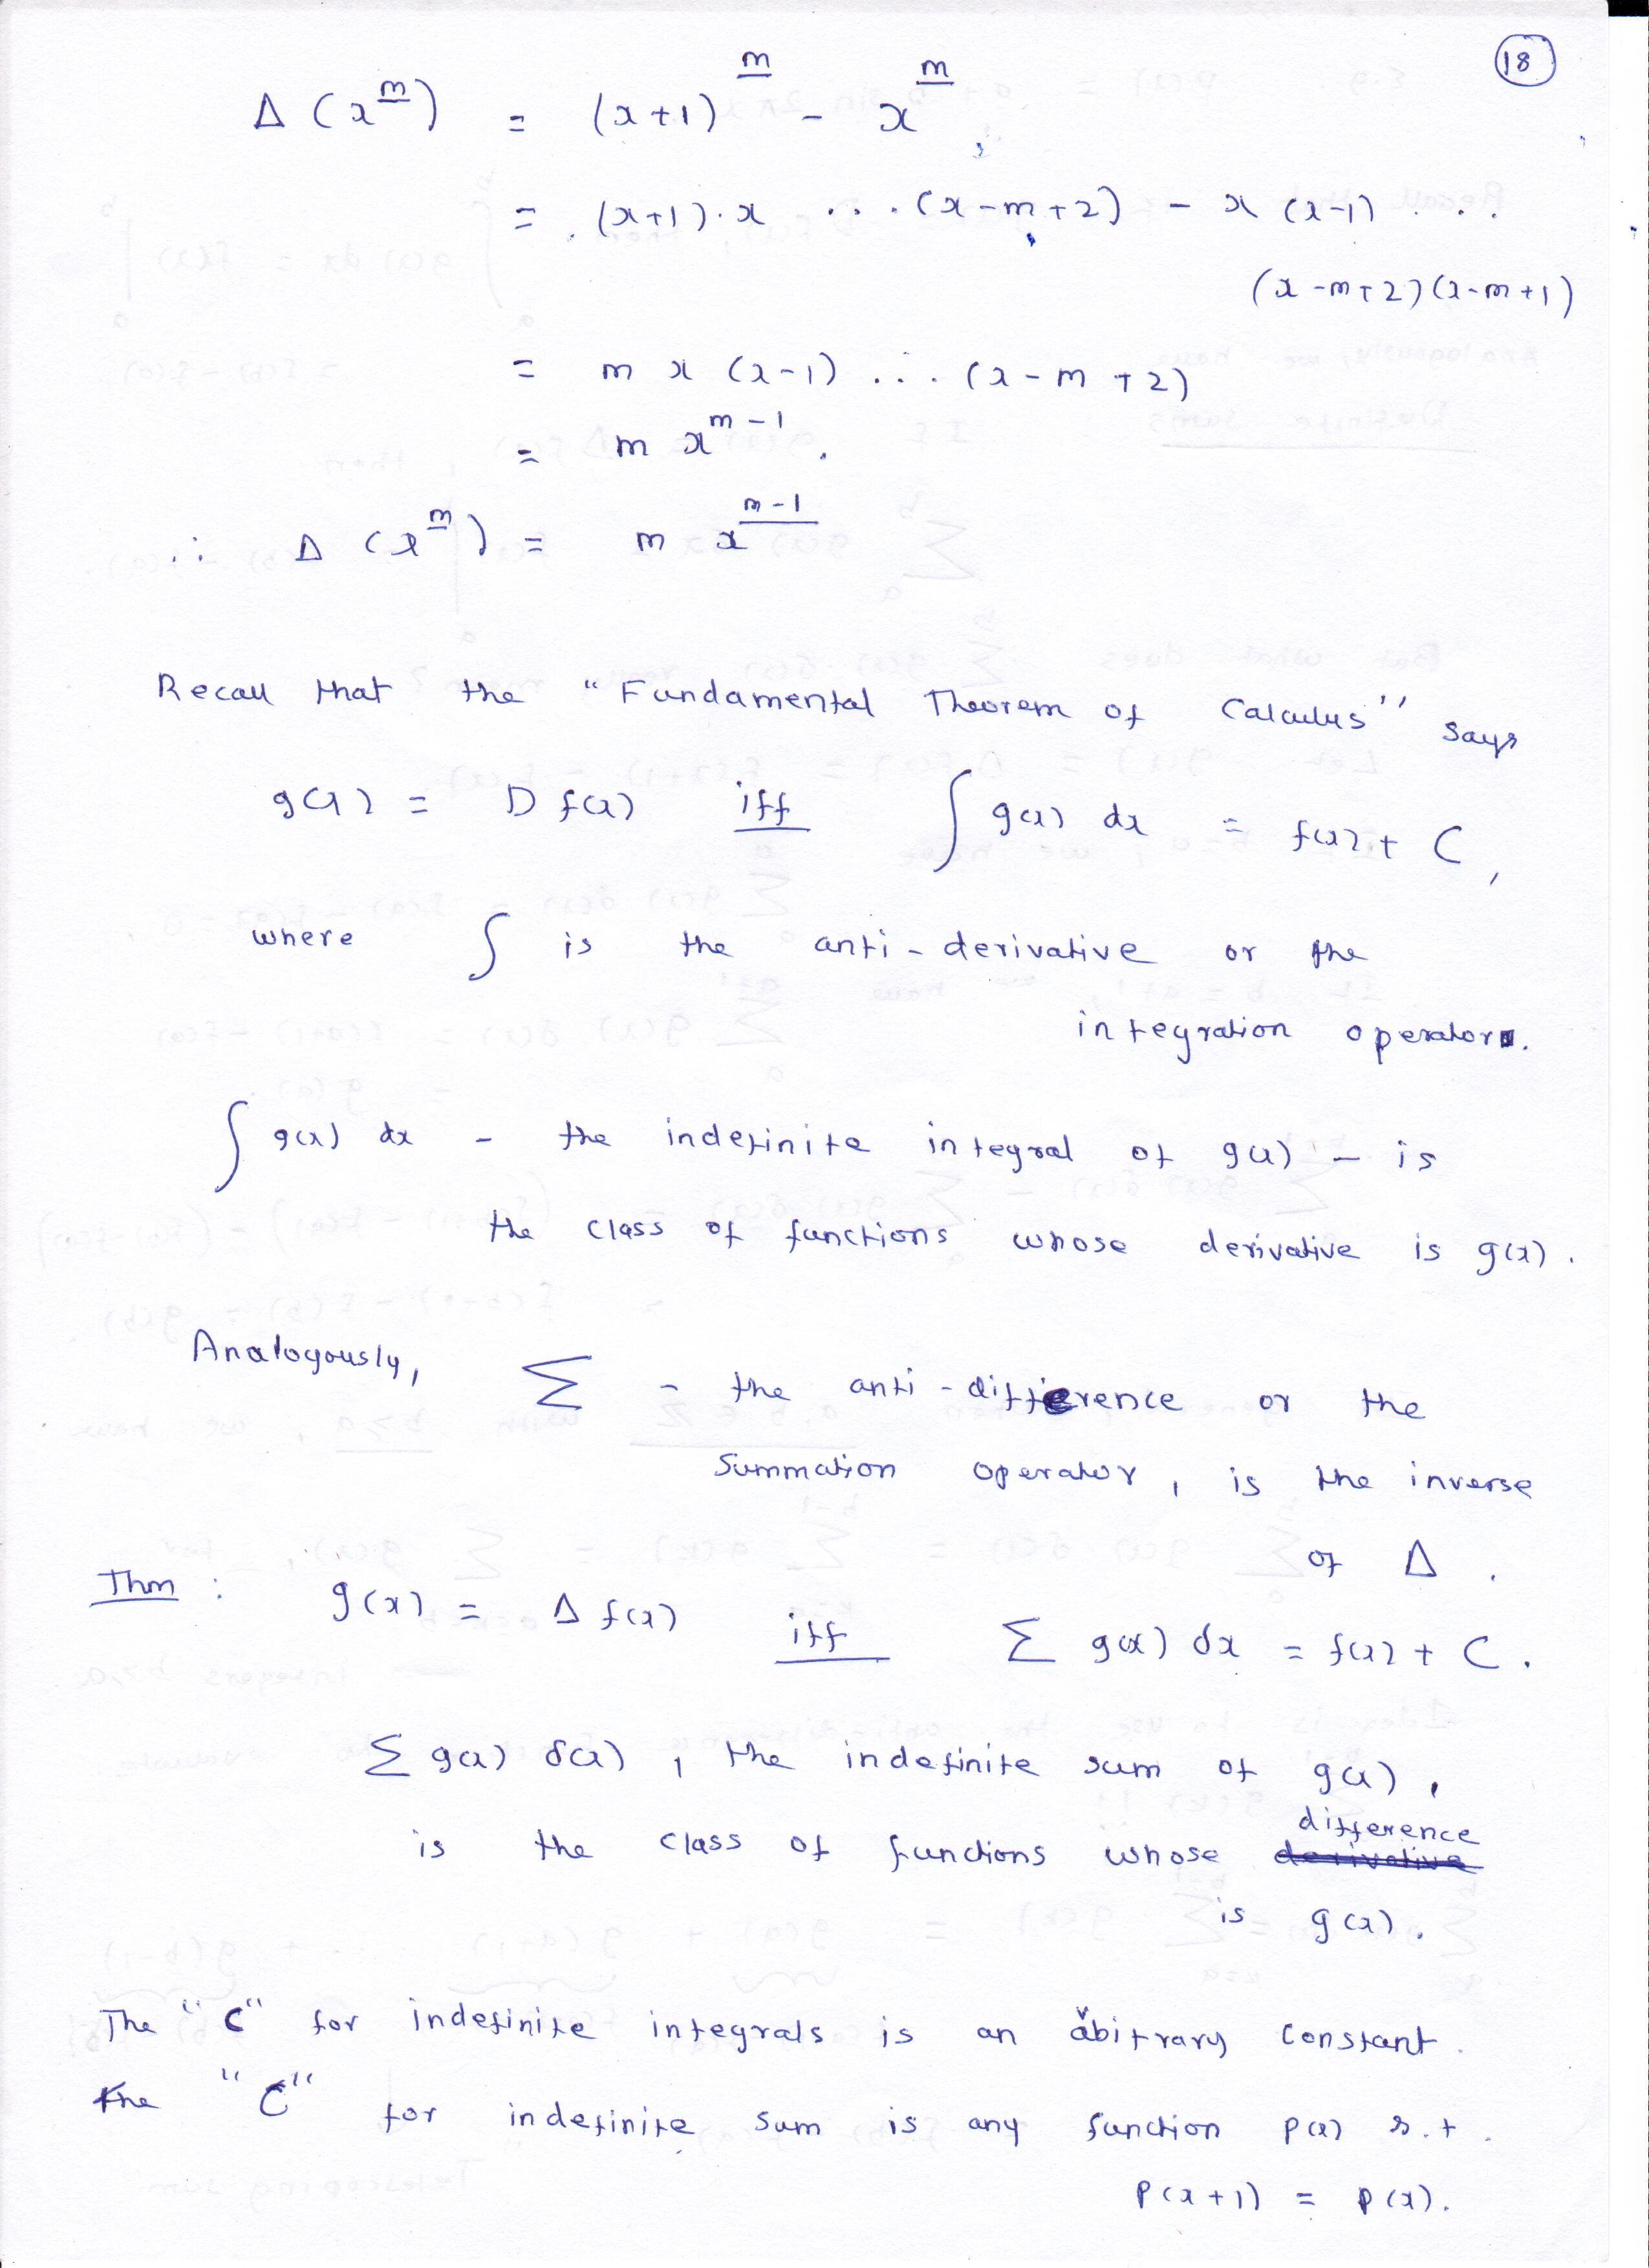 18
Δ (x^{\underline{m}}) = (x+1)^{\underline{m}} - x^{\underline{m}},
= (x+1).x ... (x-m+2) - x (x-1) ...
(x-m+2)(x-m+1)
= m x (x-1) ... (x-m+2)
= m x^{m-1}.
∴ Δ (x^{\underline{m}}) = m x^{\underline{m-1}}
Recall that the "Fundamental Theorem of Calculus" says
g(x) = D f(x) iff ∫ g(x) dx = f(x) + C,
where ∫ is the anti-derivative or the
integration operator.
∫ g(x) dx - the indefinite integral of g(x) - is
the class of functions whose derivative is g(x).
Analogously, Σ - the anti-difference or the
summation operator, is the inverse
of Δ.
Thm : g(x) = Δ f(x) iff Σ g(x) δx = f(x) + C.
Σ g(x) δ(x), the indefinite sum of g(x),
is the class of functions whose difference
is g(x).
The "C" for indefinite integrals is an arbitrary constant.
The "C" for indefinite sum is any function p(x) s.t.
p(x+1) = p(x).